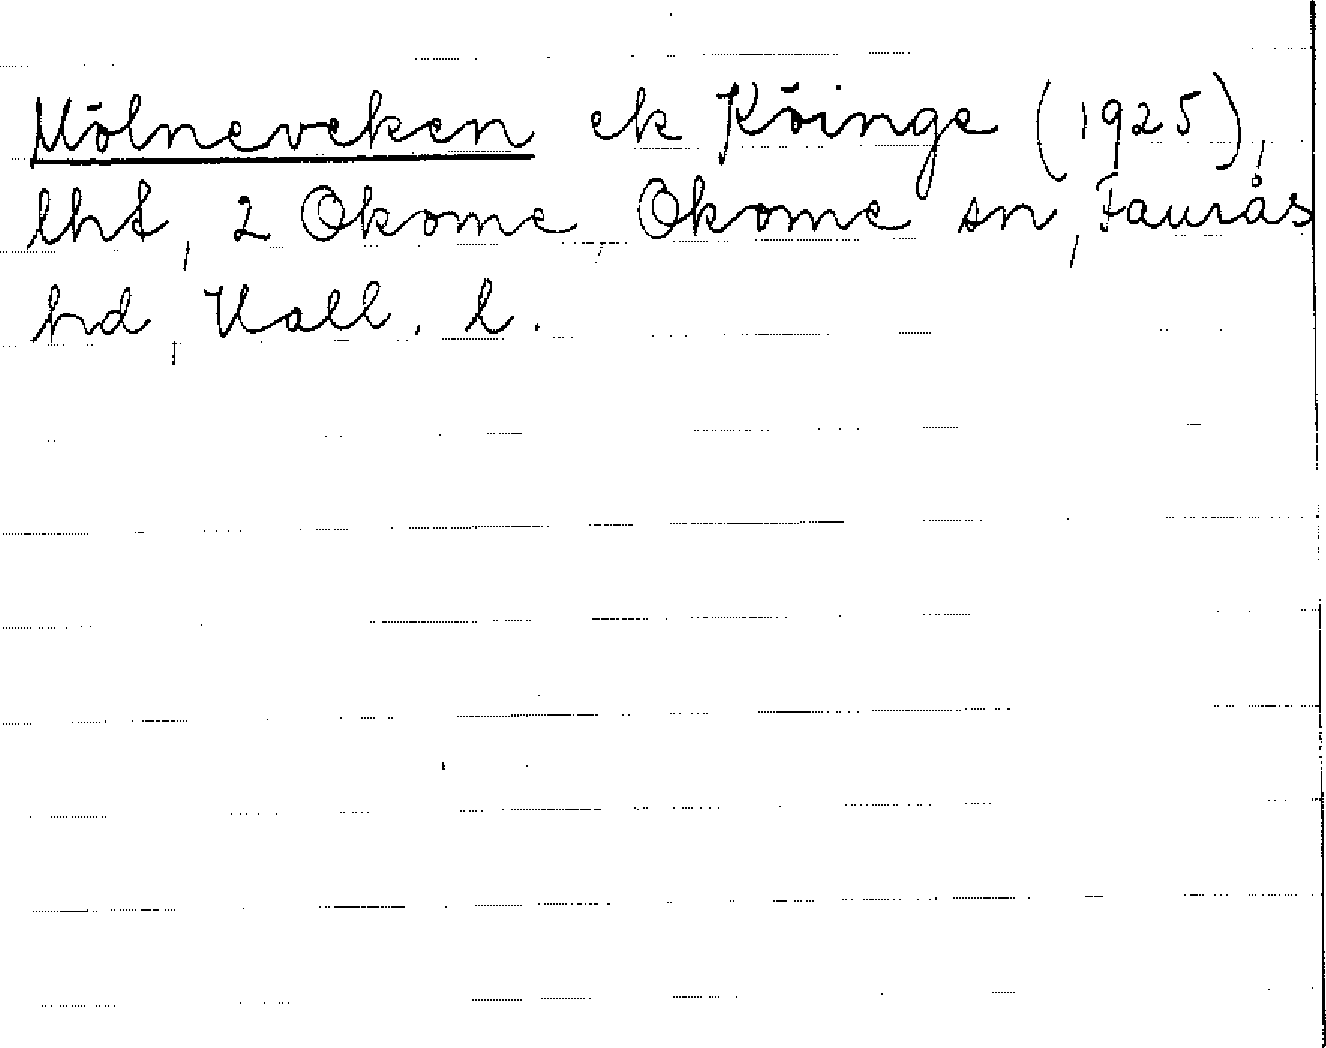 Mölneveken ek Köinge (1925),
lht, 2 Okome, Okome sn, Faurås
hd, Hall. l.